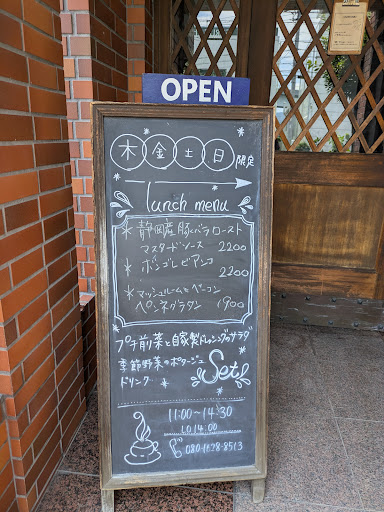 OPEN
木 金 土 日 限定
lunch menu
* 静岡産豚バラロースト
マスタードソース 2200
* ボンゴレビアンコ
2200
* マッシュルームとベーコン
ペンネグラタン 1900
プチ前菜と自家製ドレッシングのサラダ
季節野菜のポタージュ
ドリンク
Set
11:00~14:30
LO 14:00
080-1628-8513